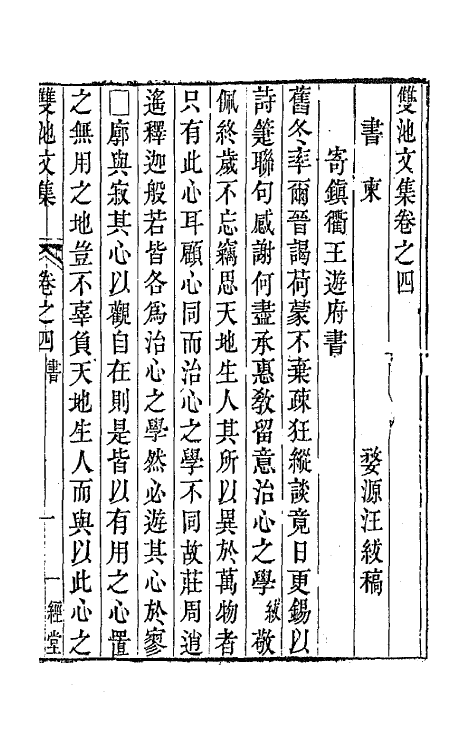 雙池文集卷之四
書柬　婺源汪紱稿
寄鎮衢王遊府書
舊冬率爾晉謁荷蒙不棄疎狂縱談竟日更錫以
詩箑聯句感謝何盡承惠教留意治心之學紱敬
佩終歲不忘竊思天地生人其所以異於萬物者
只有此心耳顧心同而治心之學不同故莊周逍
遙釋迦般若皆各為治心之學然必遊其心於寥
□廓與寂其心以觀自在則是皆以有用之心置
之無用之地豈不辜負天地生人而與以此心之
雙池文集　卷之四　書　一　一經堂